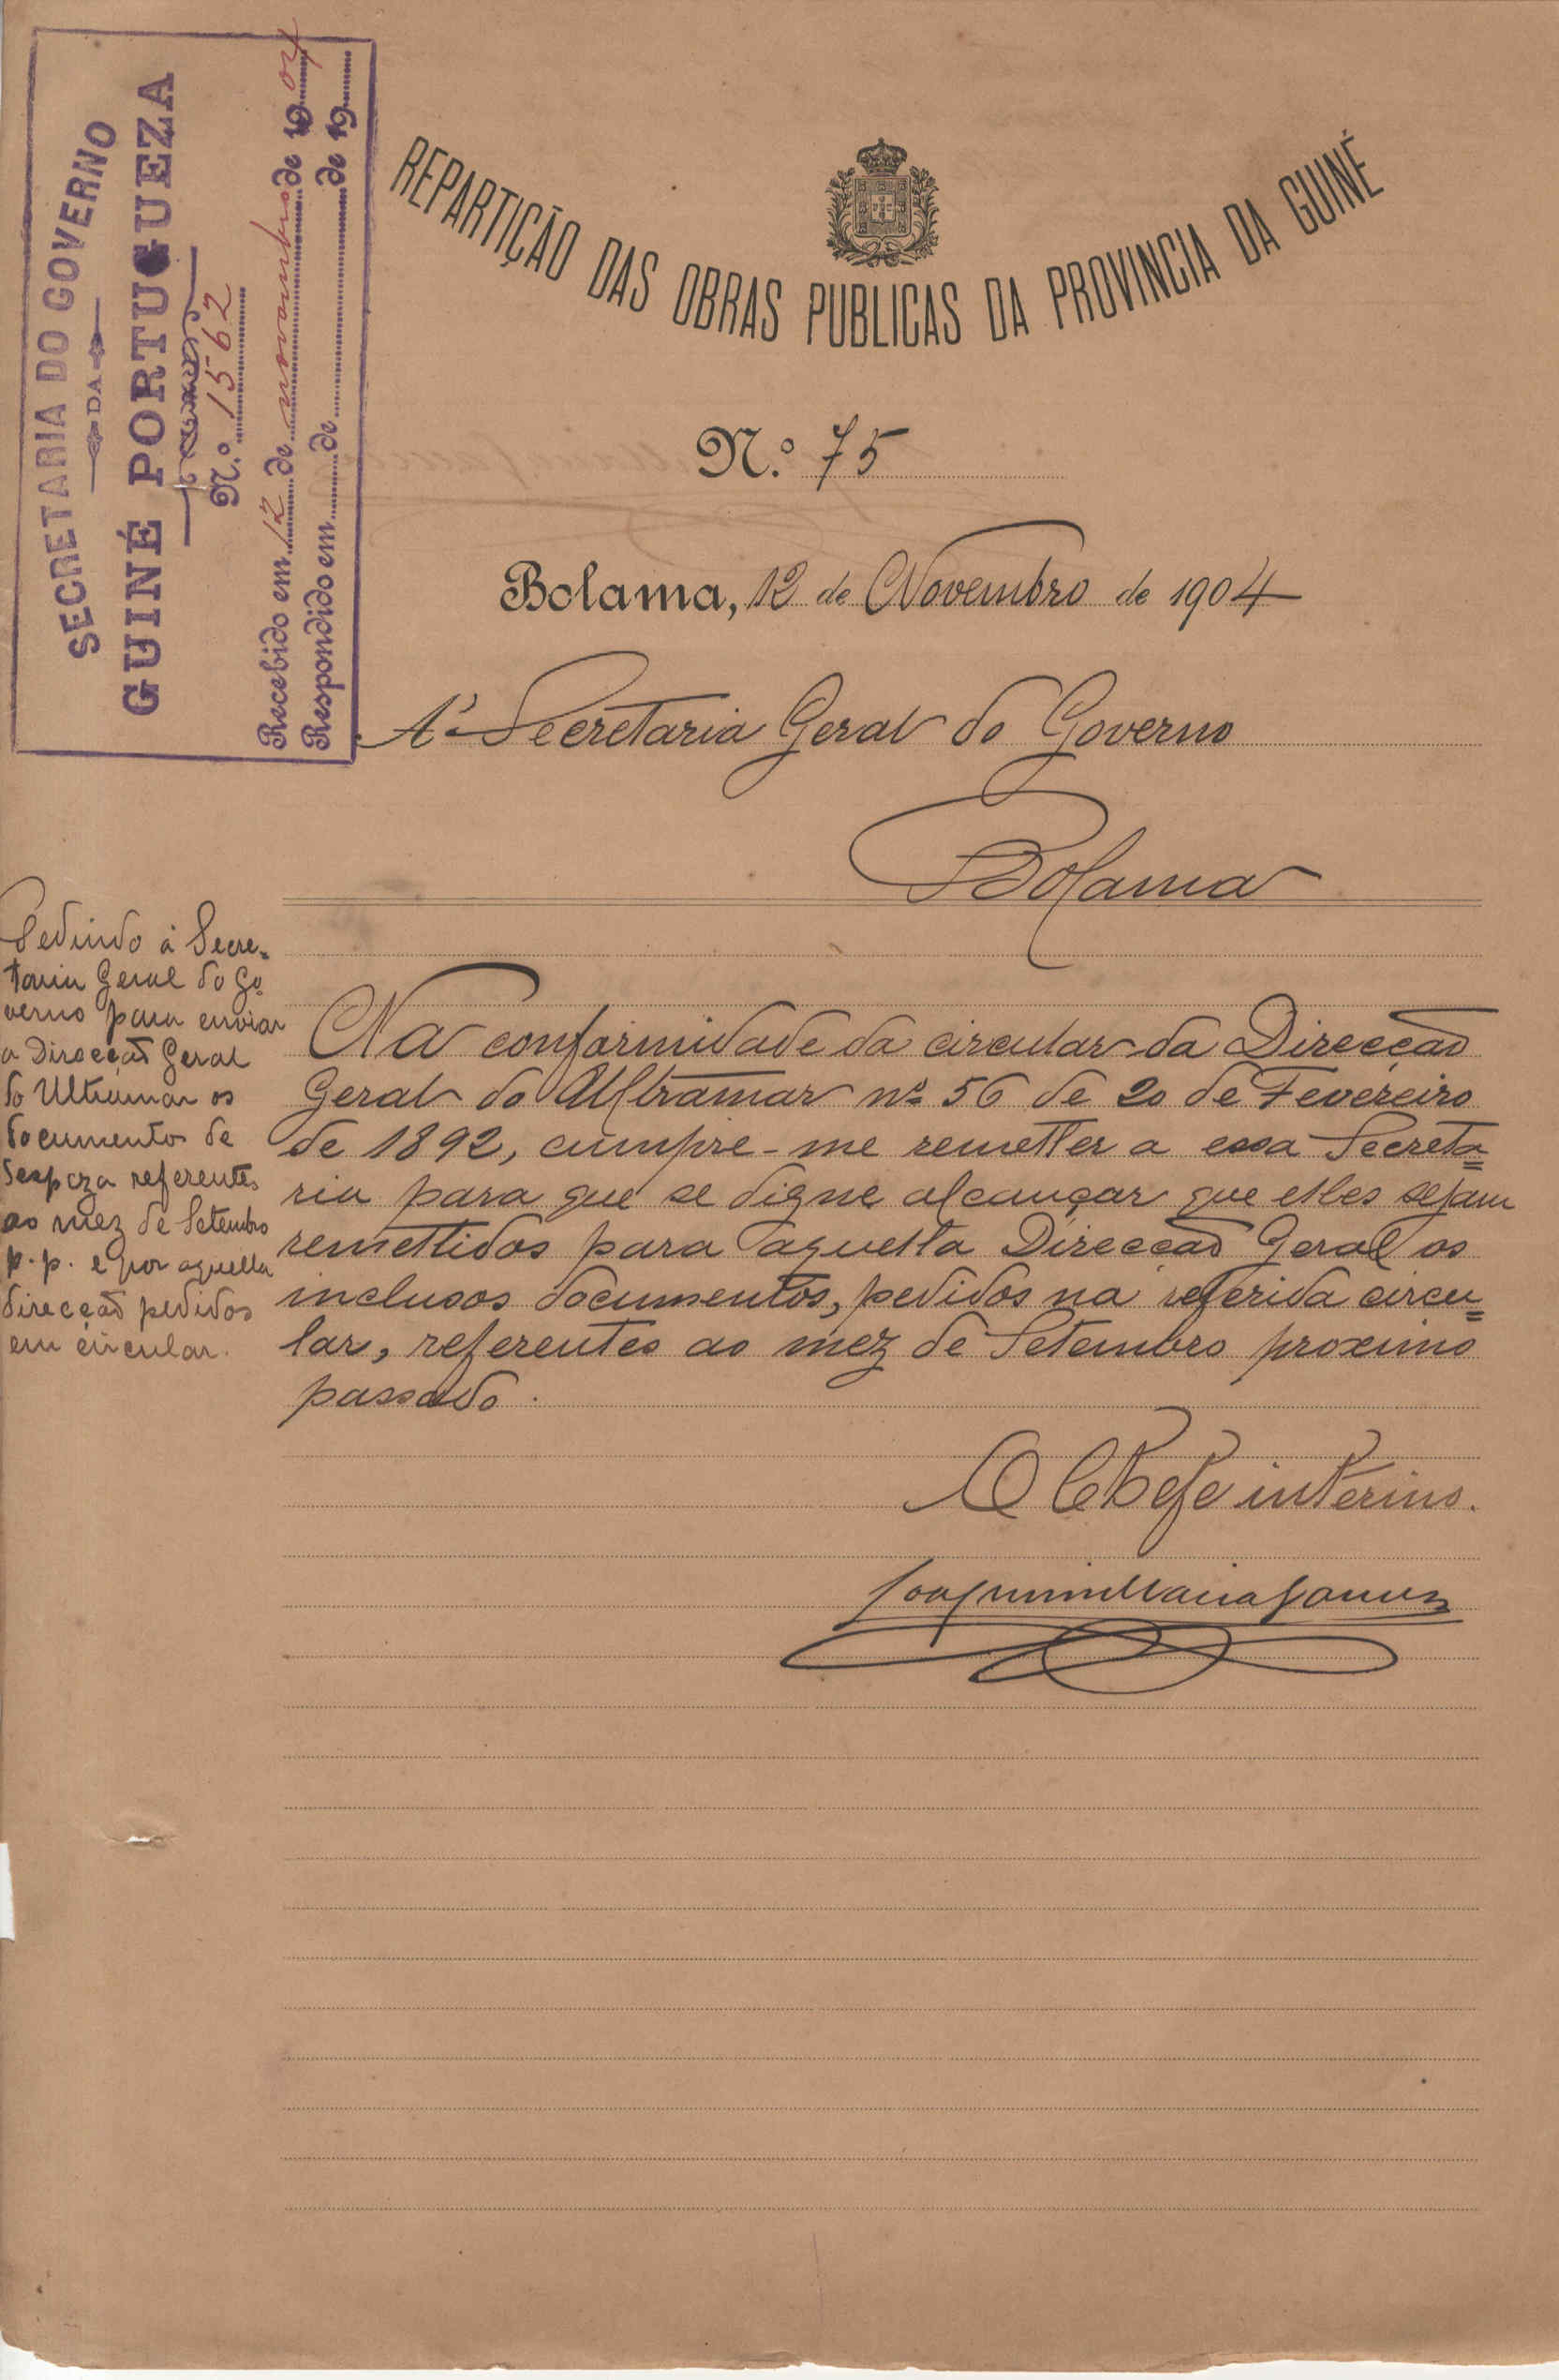 SECRETARIA DO GOVERNO
DA
GUINÉ PORTUGUEZA
N.º 1562
Recebido em 12 de novembro de 1904
Respondido em de de 19
REPARTIÇÃO DAS OBRAS PUBLICAS DA PROVINCIA DA GUINÉ
N.º 75
Bolama, 12 de Novembro de 1904
Á Secretaria Geral do Governo
Bolama
Pedindo á Secre-
taria Geral do Go-
verno para enviar
a Direcção Geral
do Ultramar os
documentos de
despeza referentes
ao mez de Setembro
p.p. e por aquella
direcção pedidos
em circular.
Na conformidade da circular da Direcção
Geral do Ultramar nº 56 de 20 de Fevereiro
de 1892, cumpre-me remetter a essa Secreta=
ria para que se digne alcançar que elles sejam
remettidos para aquella Direcção Geral os
inclusos documentos, pedidos na referida circu=
lar, referentes ao mez de Setembro proximo
passado.
O Chefe interino.
Joaquim Maria Gomes